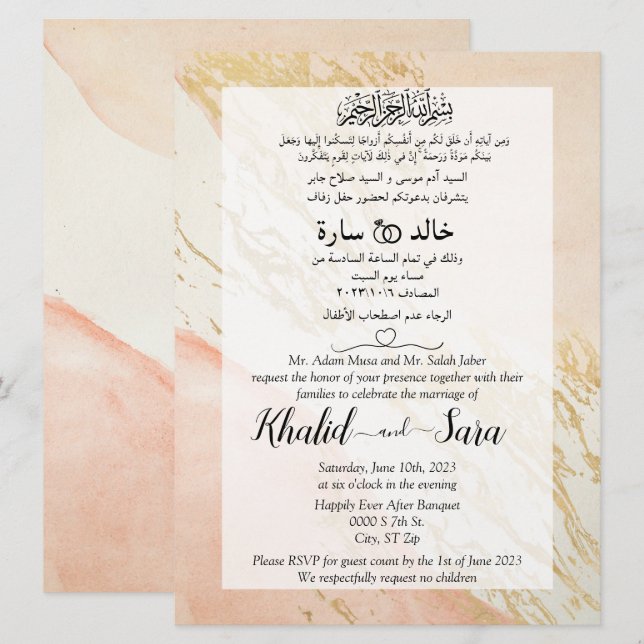 بِسْمِ اللَّهِ الرَّحْمَنِ الرَّحِيمِ
وَمِن آيَاتِهِ أَن خَلَقَ لَكُم مِن أَنفُسِكُم أَزوَاجًا لِتَسكُنُوا إِلَيهَا وَجَعَلَ
بَينَكُم مَوَدَّةً وَرَحمَةً إِنَّ فِي ذَلِكَ لَآيَاتٍ لِقَومٍ يَتَفَكَّرُونَ
السيد آدم موسى و السيد صلاح جابر
يتشرفان بدعوتكم لحضور حفل زفاف
خالد سارة
وذلك في تمام الساعة السادسة من
مساء يوم السبت
المصادف ٦\١٠\٢٠٢٣
الرجاء عدم اصطحاب الأطفال
Mr. Adam Musa and Mr. Salah Jaber
request the honor of your presence together with their
families to celebrate the marriage of
Khalid and Sara
Saturday, June 10th, 2023
at six o'clock in the evening
Happily Ever After Banquet
0000 S 7th St.
City, ST Zip
Please RSVP for guest count by the 1st of June 2023
We respectfully request no children